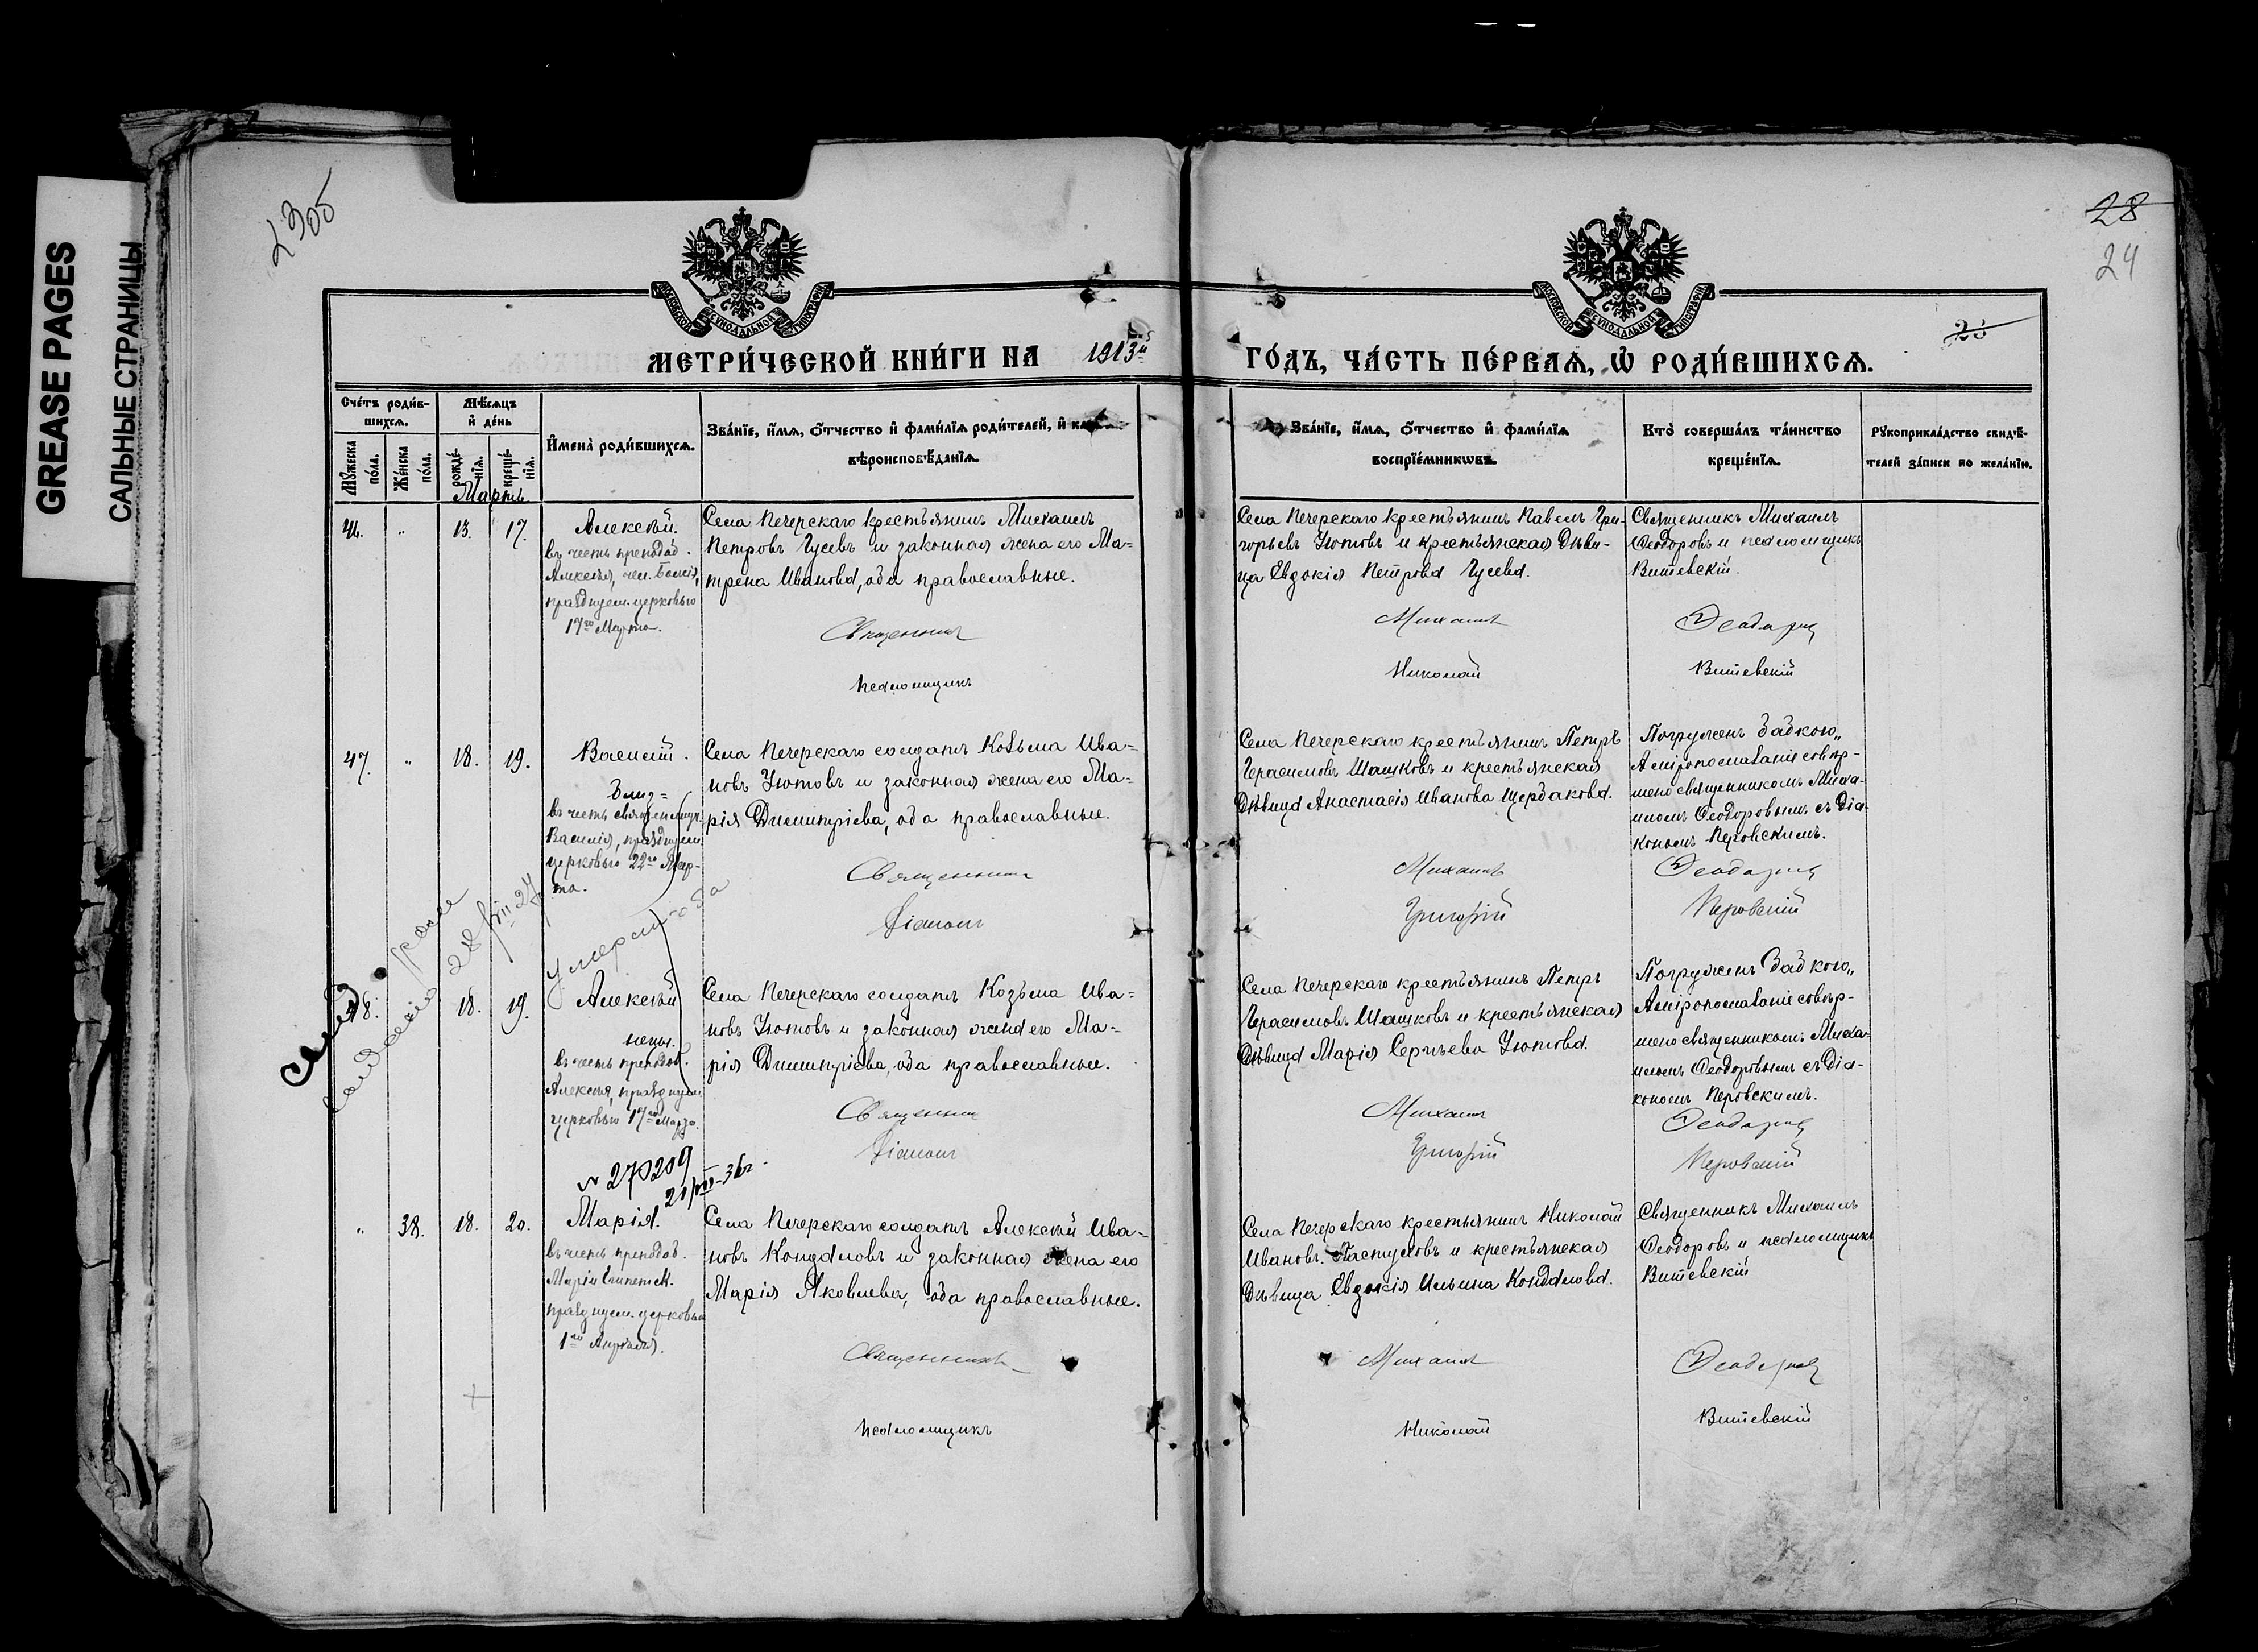 GREASE PAGES
САЛЬНЫЕ СТРАНИЦЫ
28
24
МЕТРИ́ЧЕСКОЙ КНИ́ГИ НА 1913й
ГО́ДЪ, ЧА́СТЬ ПЕ́РВАѦ, Ѡ РОДИ́ВШИХСѦ.
Сче́тъ роди́в-
шихсѧ.
Мѣ́сѧцъ
и де́нь
Мꙋ́жеска по́ла.
Же́нска по́ла.
рожде́-
нїѧ.
креще́-
нїѧ.
Имена̀ роди́вшихсѧ.
Зва́нїе, и́мѧ, о́тчество и фами́лїѧ роди́телей, и
вѣроисповѣ́данїѧ.
Зва́нїе, и́мѧ, о́тчество и фами́лїѧ
воспрїе́мникѡвъ.
Кто̀ соверша́лъ та́инство
креще́нїѧ.
Рꙋкоприкла́дство свидѣ́-
телей за́писи по жела́нїю.
Мартъ
46. " 13. 17.
Алексѣй.
въ честь преподоб.
Алексѣя, чел. Божія,
празднуем. церковью
17го Марта.
Села Печерскаго крестьянинъ Михаилъ
Петровъ Гусевъ и законная жена его Ма-
трена Иванова, оба православные.
Священникъ
псаломщикъ
Села Печерскаго крестьянинъ Павелъ Гри-
горьевъ Уютовъ и крестьянская дѣви-
ца Евдокія Петрова Гусева.
Михаилъ
Николай
Священникъ Михаилъ
Ѳеодоровъ и псаломщикъ
Витевскій.
Ѳеодоровъ
Витевскій
47. " 18. 19.
Василій.
близ-
въ честь священномуч.
Василія, празднуем.
церковью 22го Мар-
та.
Села Печерскаго солдатъ Козьма Ива-
новъ Уютовъ и законная жена его Ма-
рія Димитріева, оба православные.
Священникъ
Діаконъ
Села Печерскаго крестьянинъ Петръ
Герасимовъ Шашковъ и крестьянская
дѣвица Анастасія Иванова Щербакова.
Михаилъ
Григорій
Погруженъ бабкою,,
А мѵропомазаніе совер-
шено священникомъ Миха-
иломъ Ѳеодоровымъ съ діа-
кономъ Перовскимъ.
Ѳеодоровъ
Перовскій
умерли оба
48. 18. 19.
Алексѣй
нецы.
въ честь преподоб.
Алексѣя, празднуем.
церковью 17го Марта.
Села Печерскаго солдатъ Козьма Ива-
новъ Уютовъ и законная жена его Ма-
рія Димитріева, оба православные.
Священникъ
Діаконъ
Села Печерскаго крестьянинъ Петръ
Герасимовъ Шашковъ и крестьянская
дѣвица Марія Сергѣева Уютова.
Михаилъ
Григорій
Погруженъ бабкою,,
А мѵропомазаніе совер-
шено священникомъ Миха-
иломъ Ѳеодоровымъ съ діа-
кономъ Перовскимъ.
Ѳеодоровъ
Перовскій
№ 270209
21/VIII-36г.
" 38. 18. 20.
Марія.
въ честь преподоб.
Маріи Египетск.
празднуем. церковью
1го Апрѣля.
Села Печерскаго солдатъ Алексѣй Ива-
новъ Кондаловъ и законная жена его
Марія Яковлева, оба православные.
Священникъ
псаломщикъ
Села Печерскаго крестьянинъ Николай
Ивановъ Пастуховъ и крестьянская
дѣвица Евдокія Ильина Кондалова.
Михаилъ
Николай
Священникъ Михаилъ
Ѳеодоровъ и псаломщикъ
Витевскій
Ѳеодоровъ
Витевскій